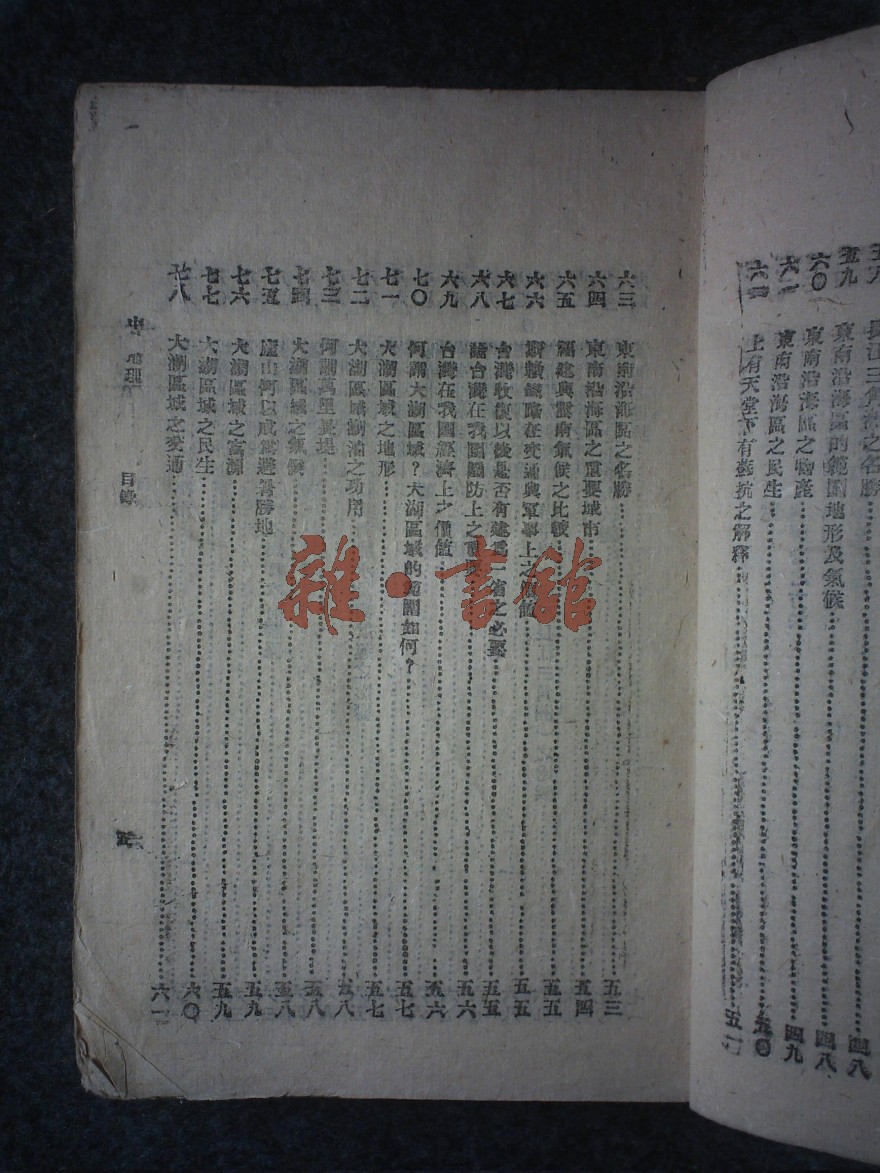 五八 長江三角洲之名勝 四八
五九 東南沿海區的範圍地形及氣候 四八
六〇 東南沿海區之物產 四九
六一 東南沿海區之民生 五〇
六二 上有天堂下有蘇杭之解釋
六三 東南沿海區之名勝 五三
六四 東南沿海區之重要城市 五四
六五 福建與雲南氣候之比較 五五
六六 浙贛鐵路在交通與軍事上之價值 五五
六七 台灣收復以後是否有建為一省之必要 五五
六八 台灣在我國國防上之 五六
六九 台灣在我國經濟上之價值 五六
七〇 何謂大湖區域?大湖區域的範圍如何? 五七
七一 大湖區域之地形 五七
七二 大湖區域湖泊之功用 五八
七三 何謂萬里長堤 五八
七四 大湖區域之氣候 五八
七五 廬山何以成為避暑勝地 五九
七六 大湖區域之富源 五九
七七 大湖區域之民生 六〇
七八 大湖區域之交通 六一
地理 目錄
雜·書館